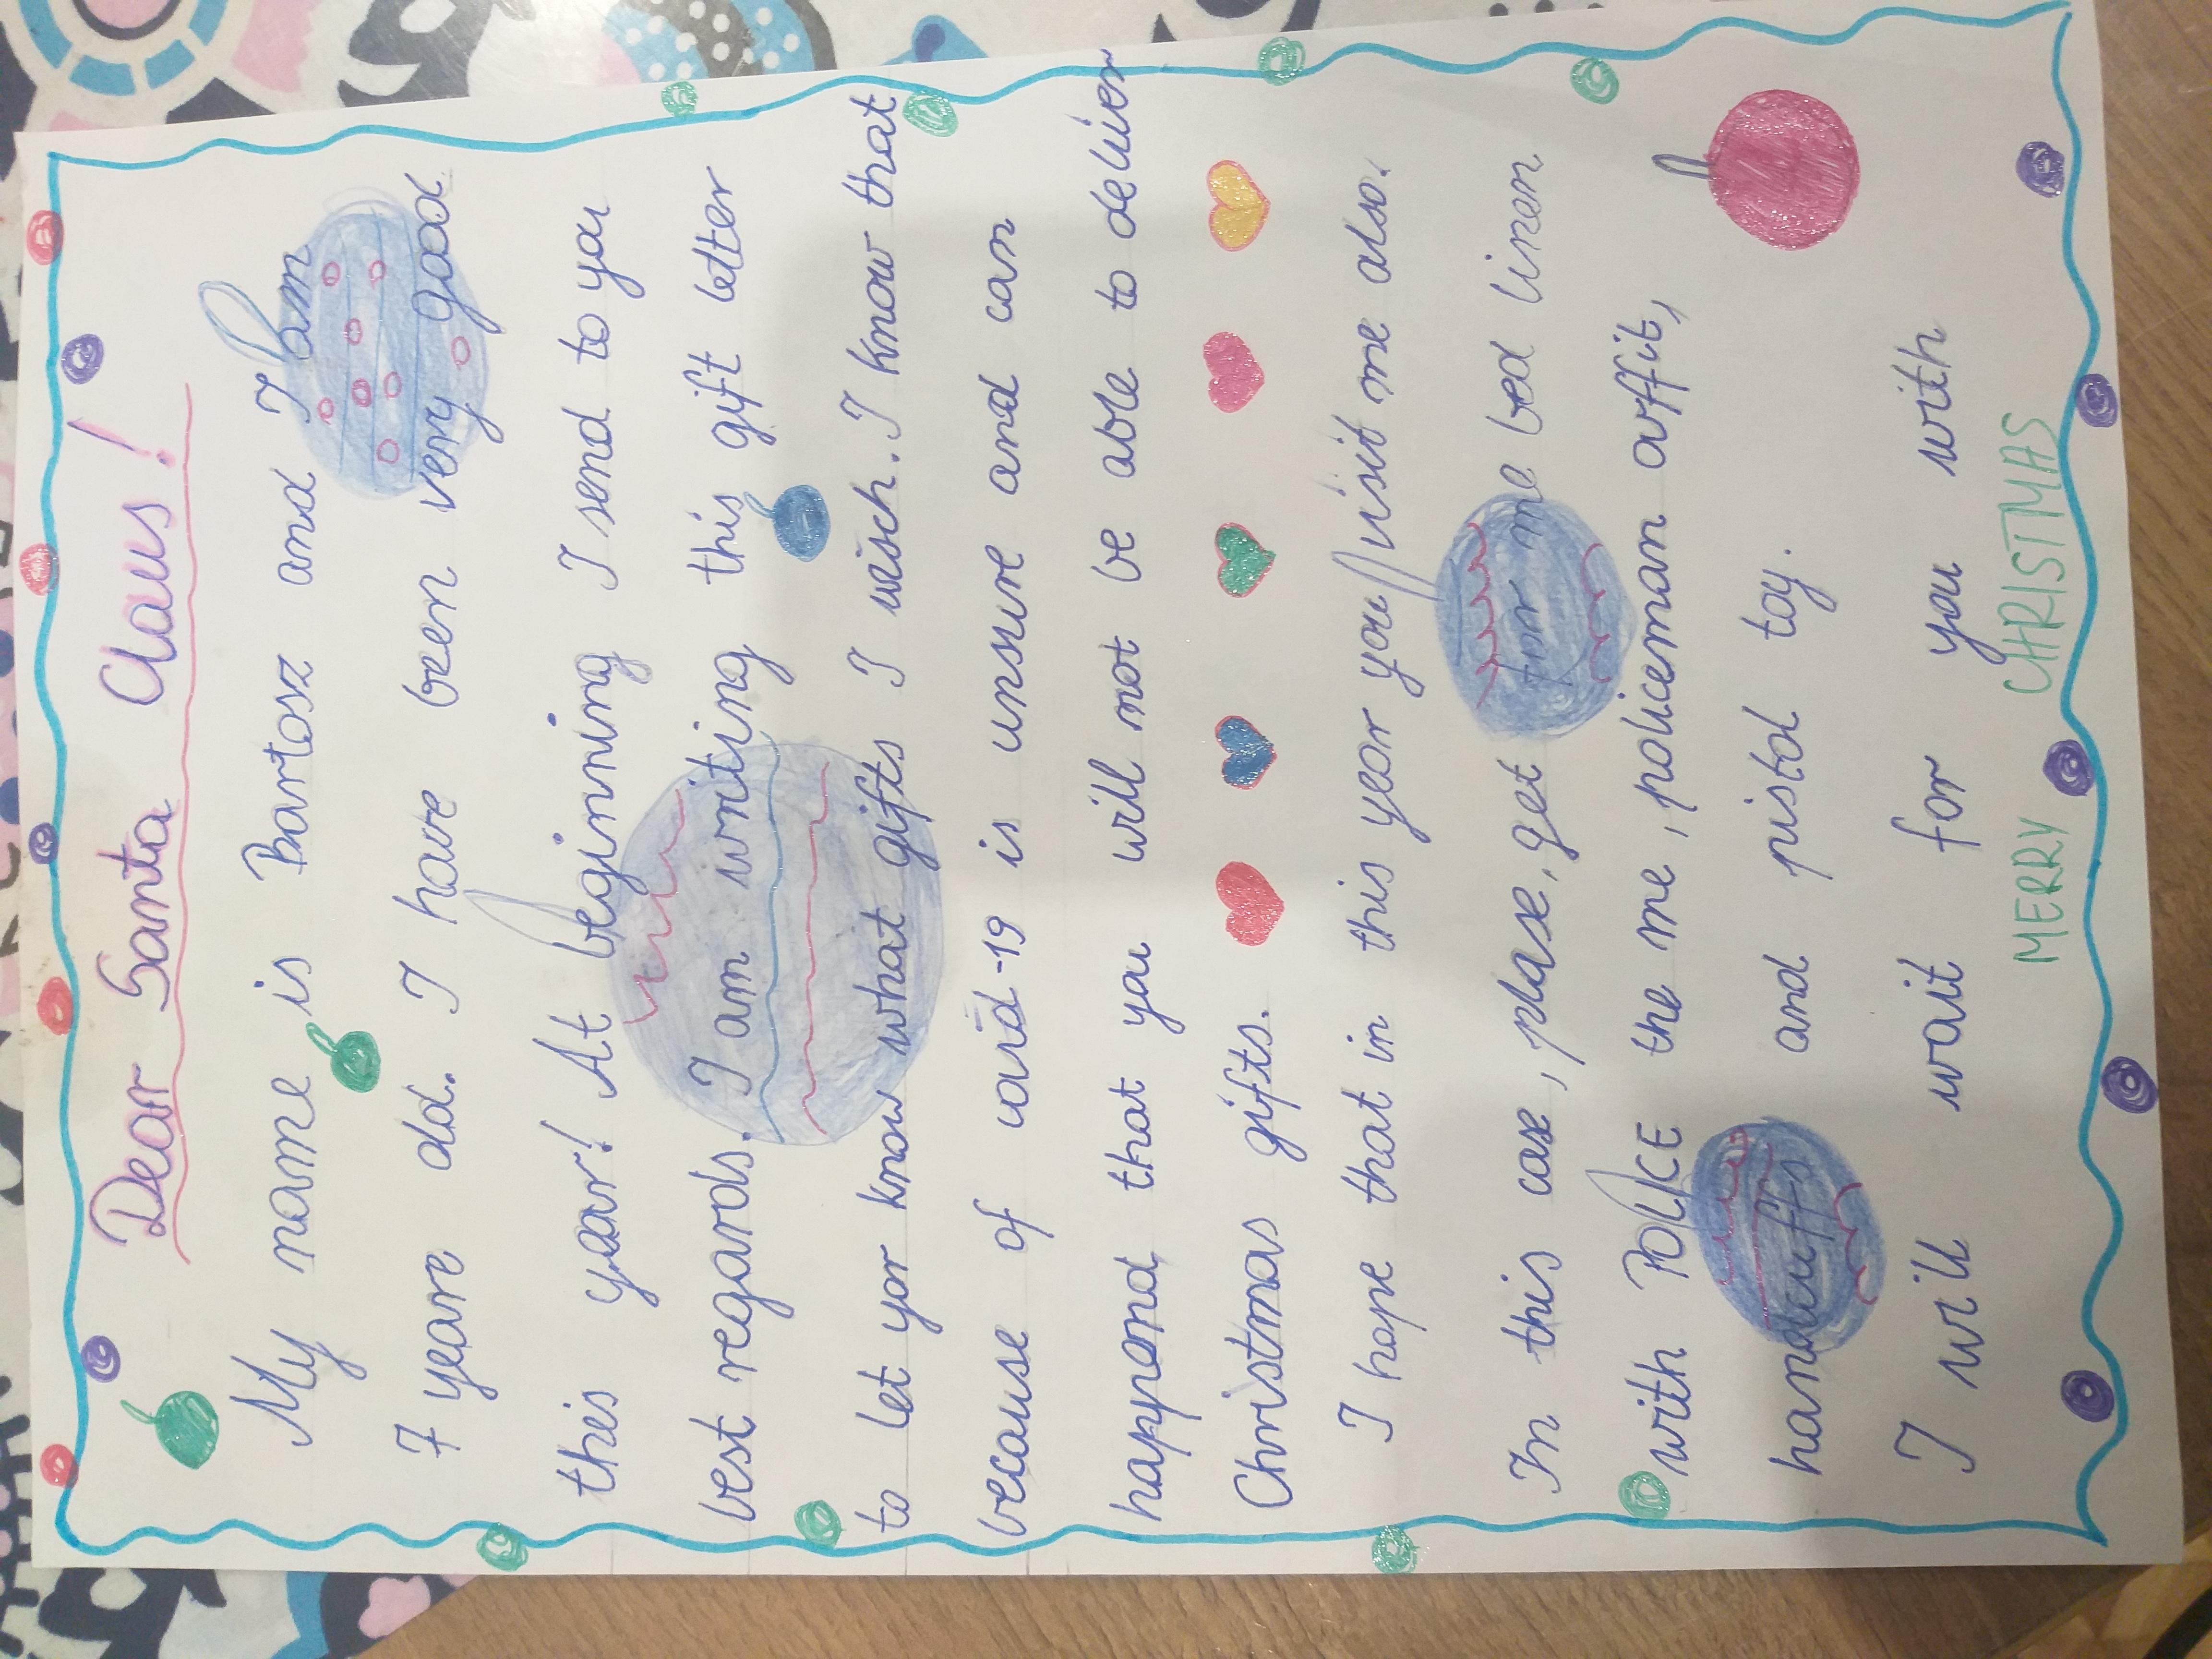 Dear Santa Claus!
My name is Bartosz and I am
7 yeare old. I have been very good
this year! At beginning I send to you
best regards. I am writing this gift letter
to let yor know what gifts I wisch. I know that
because of covid-19 is unsure and can
happend that you will not be able to deliver
Christmas gifts.
I hope that in this year you visit me also.
In this case, please, get for me bed linen
with POLICE the me, policeman outfit,
handcuffs and pistol toy.
I will wait for you with
MERRY CHRISTMAS